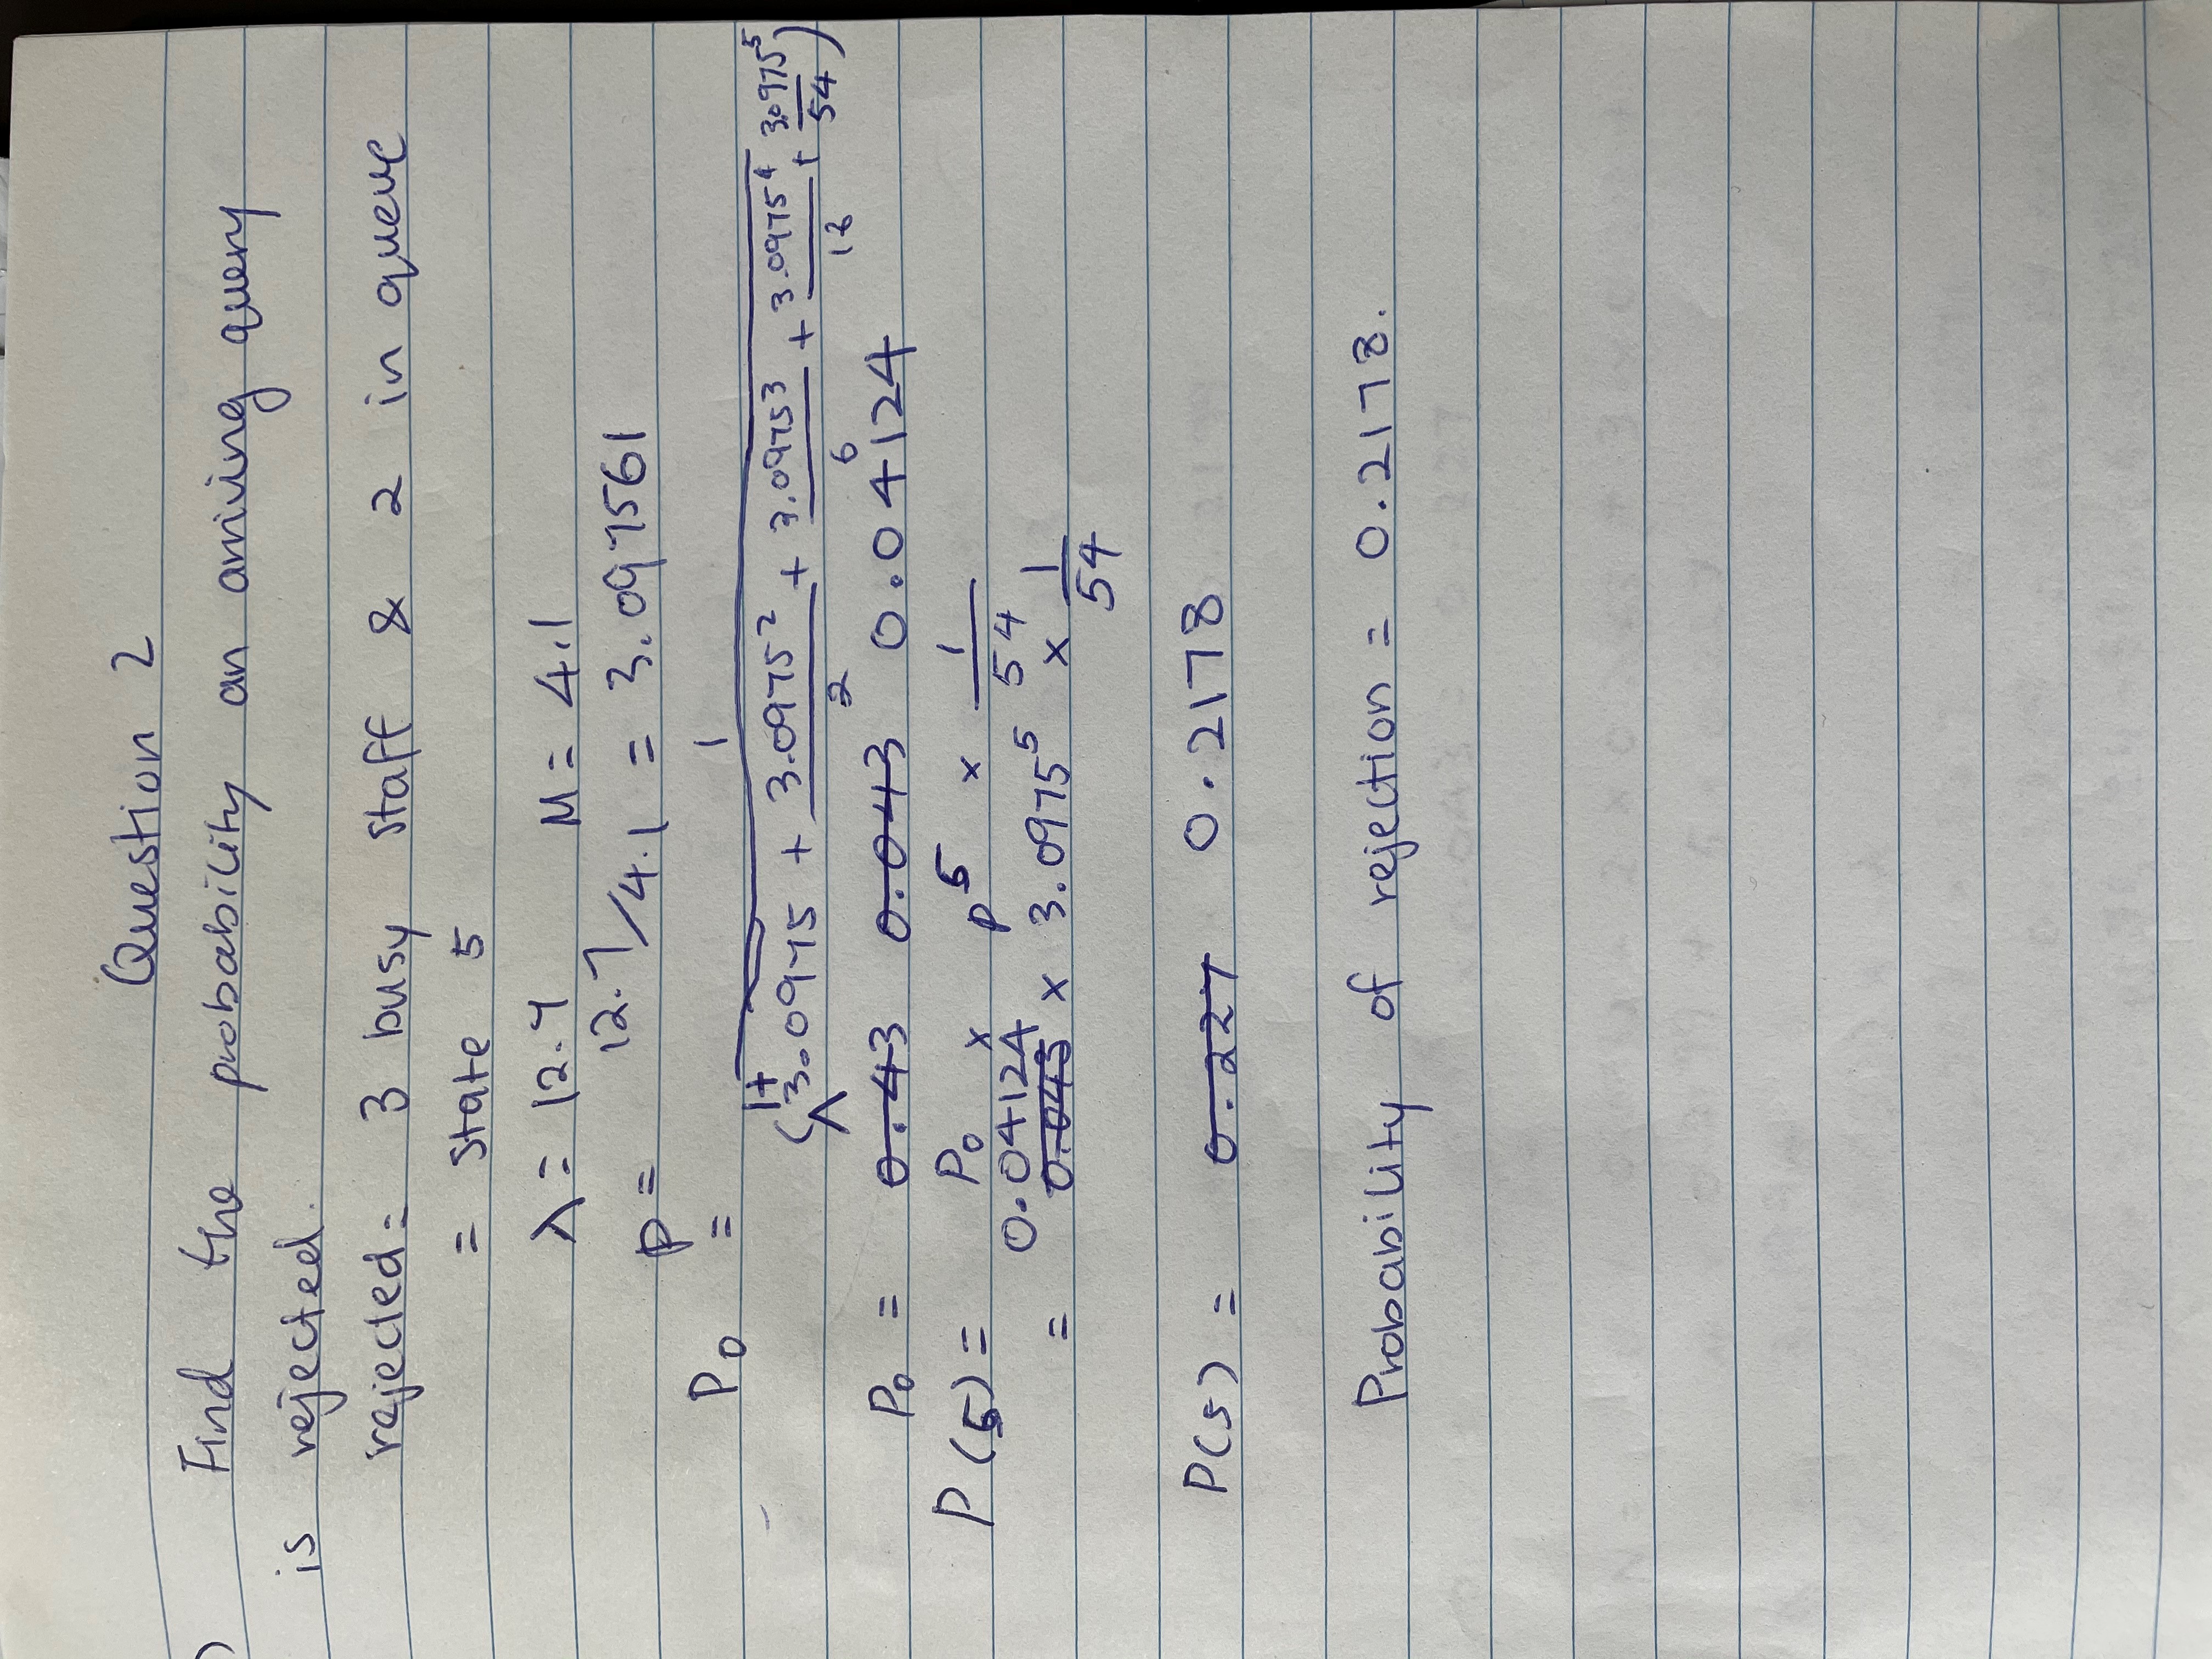 Question 2
Find the probability an arriving query
is rejected.
rejected = 3 busy staff & 2 in queue
= state 5
λ = 12.7 M = 4.1
P = 12.7/4.1 = 3.097561
P0 = 1
(1+ 3.0975 + 3.0975² + 3.0975³ + 3.0975⁴ + 3.0975⁵)
2 6 18 54
P0 = 0.43 0.043 0.04124
P(5) = P0 x P⁵ x 1
54
= 0.04124 0.043 x 3.0975⁵ x 1
54
P(5) = 0.227 0.2178
Probability of rejection = 0.2178.